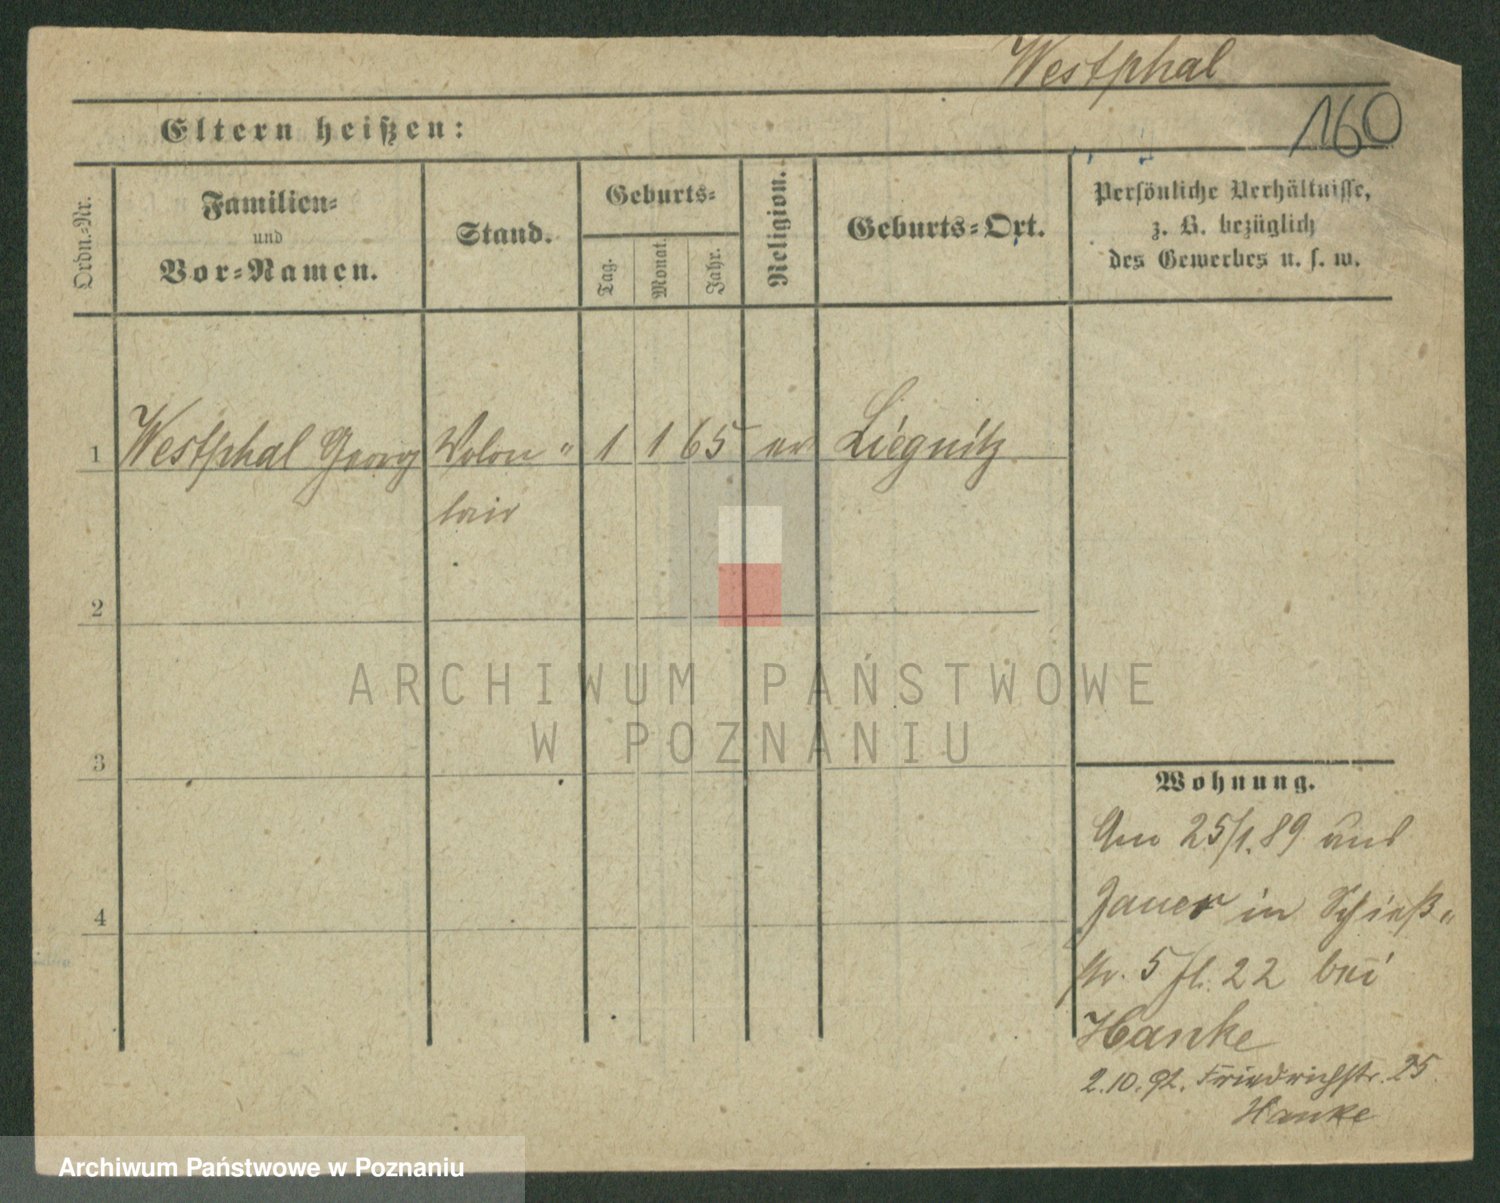 Westphal
160
Eltern heißen:
Ordn.-Nr.
Familien-
und
Vor-Namen.
Stand.
Geburts-
Tag.
Monat.
Jahr.
Religion.
Geburts-Ort.
Persönliche Verhältnisse,
z. B. bezüglich
des Gewerbes u. s. w.
1 Westphal Georg Volon- 1 1 65 ev Liegnitz
tair
2
3
4
Wohnung.
Am 25/1.89 aus
Jauer in Schieß-
str. 5 fl. 22 bei
Hanke
2.10.92. Friedrichstr. 25
Hanke
ARCHIWUM PAŃSTWOWE
W POZNANIU
Archiwum Państwowe w Poznaniu